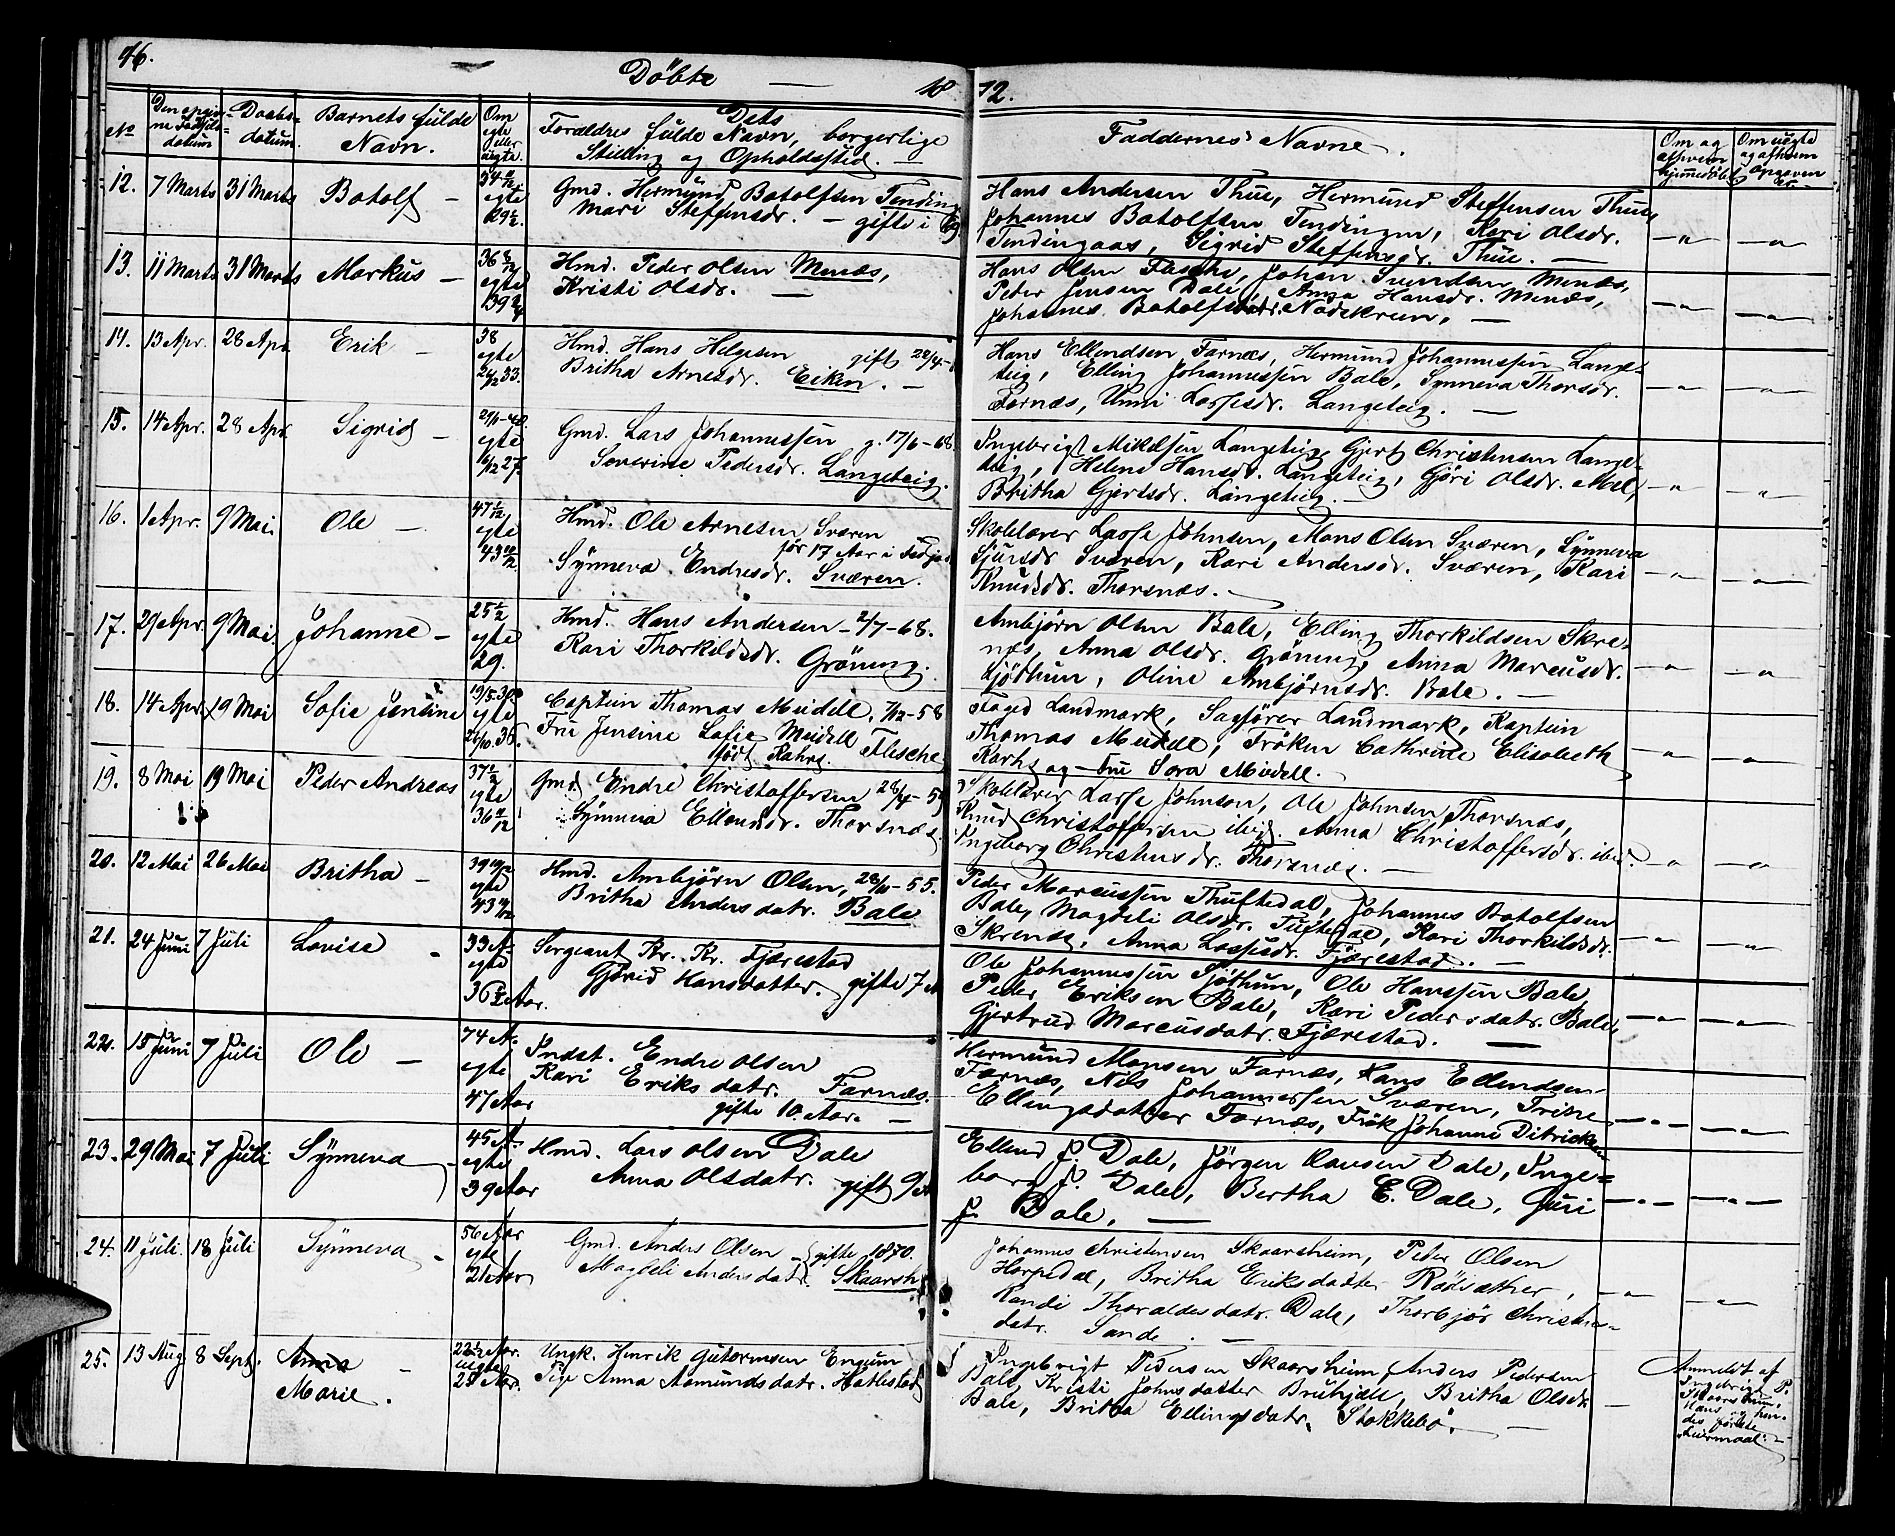 46.
Döbte — 18
72.
No
Den opgivne Fødselsdatum
Daabsdatum.
Barnets fulde Navn.
Om egte eller uegte.
Dets Forældres fulde Navn, borgerlige
Stilling og Opholdssted. —
Faddernes Navne.
Om og af hvem hjemmedöbt
Om uegte og af hvem Opgaven er
12. 7 Marts 31 Marts Botolf —
egte
29½.
Gmd. Hermund Botolfsen Tendingen
Mari Steffensdr. — gifte i
Hans Andersen Thue, Hermund Steffensen Thue,
Johannes Botolfsen Tendingen, Kari Olsdr.
Tendingaas, Sigrid Steffensdr. Thue. —
13. 11 Marts 31 Marts Markus —
36 8/12
egte
Hmd. Peder Olsen Menæs,
Kristi Olsdr. —
Hans Olsen Johan Svendsen Menæs,
Peder Jensen Dale, Anna Hansdr. Menæs,
Johannes Botolfsen
14. 13 Apr. 28 Apr. Erik —
38
egte
33.
Hmd. Hans Helgesen gift 22/4-
Britha Arnesdr. Eiken. —
Hans Ellendsen Farnæs, Hermund Johannessen Lange-
teig, Elling Johannessen Bale, Synneva Thorsdr.
Farnæs, Unni Lassesdr. Langeteig. —
15. 14 Apr. 28 Apr. Sigrid —
egte
27.
Gmd. Lars Johannessen g. 17/6-68.
Severine Pedersdr. Langeteig.
Ingebrigt Mikelsen Langeteig, Gjert Christensen Lange-
teig, Helene Hansdr. Langeteig, Gjöri Olsdr. Mel,
Britha Gjertsdr. Langeteig. —
16. 1 Apr. 9 Mai. Ole —
egte
Hmd. Ole Arnesen Sværen
för 17 Aar i
Synneva Endresdr. Sværen.
Skolelærer Lasse Johnsen, Mons Olsen Sværen, Synneva
Sjursdr. Sværen, Kari Andersdr. Sværen, Kari
Knudsdr. Thorsnæs. —
17. 29 Apr. 9 Mai. Johanne —
egte
29.
Hmd. Hans Andersen — 2/7-68.
Kari Thorkildsdr. Gröning.
Ambjörn Olsen Bale, Elling Thorkildsen Skre-
næs, Anna Olsdr. Gröning, Anna Marcusdr.
Sjöthun, Oline Ambjörnsdr. Bale. —
18. 14 Apr. 19 Mai Sofie Jensine
19/5 30
egte
Captein Thomas Meidell, 7/12-58
Fru Jensine Sofie Meidell
født Rahrs. Flesche
Foged Landmark, Sagförer Landmark, Kaptein
Thomas Meidell, Fröken Cathrine Elisabeth
Rorhs og Fru Sara Meidell.
19. 8 Mai 19 Mai Peder Andreas
egte
Gmd. Endre Christoffersen 28/4-59
Synneva Ellendsdr. Thorsnæs.
Skolelærer Lasse Johnsen, Ole Johnsen Thorsnæs,
Knud Christoffersen ibid. Anna Christoffersdr. ibid.
Ingeborg Christensdr. Thorsnæs. —
20. 12 Mai 26 Mai Britha —
egte
Hmd. Ambjörn Olsen, 28/10-55.
Britha Andersdatr. Bale
Peder Marcussen Thuftedal, Johannes Botolfsen
Bale, Magdeli Olsdr. Tuftedal, Kari Thorkildsdr.
Skrenæs, Anna Lassesdr. Fjærestad. —
21. 24 Juni 7 Juli Lovise
33 A.
egte
36½ Aar.
Sergeant Kr. Kr. Fjærestad
Gjörid Hansdatter. gifte 7 A
Ole Johannessen Sjöthun, Ole Hanssen Bale,
Peder Eriksen Bale, Kari Pedersdatr. Bale,
Gjertrud Marcusdatr. Fjærestad. —
22. 15 Juni 7 Juli Ole —
74 A.
egte
47 Aar
Indst. Endre Olsen
Kari Eriksdatr. Farnæs.
gifte 10 Aar. —
Hermund Monsen Farnæs, Hans Ellendsen
Farnæs, Nils Johannessen Sværen, Trine
Ellingsdatter Farnæs, Frök Johanne Ditricksen
23. 29 Mai 7 Juli Synneva
45 A.
egte
39 Aar
Hmd. Lars Olsen Dale
Anna Olsdatr. gift 9 A
Ellend J. Dale, Jörgen Hansen Dale, Inge-
borg J. Dale, Bertha E. Dale, Guri
J. Dale. —
24. 11 Juli. 18 Juli Synneva
56 Aar
egte
21 Aar
Gmd. Anders Olsen — gifte 1870.
Magdeli Andersdatr. Skaarsh
Johannes Christensen Skaarsheim, Peder Olsen
Horpedal, Britha Eriksdatter Rödsæther,
Randi Thoraldesdatr. Dale, Thorbjör Christen-
datr. Sande. —
25. 13 Aug. 8 Sept. Anna —
Marie.
22½ Aar.
uegte
25 Aar.
Ungk. Henrik Gutormsen Engum
Pige Anna Aamundsdatr. Hatlestad
Ingebrigt Pedersen Skaarsheim, Anders Pedersen
Bale, Kristi Johnsdatter Bruhjell, Britha Olsdr.
Bale, Britha Ellingsdatr. Stokkebö. —
Anmeldt af
Ingebrigt P.
Skaarsheim.
Hans og hen-
des förste
Leiermaal. —